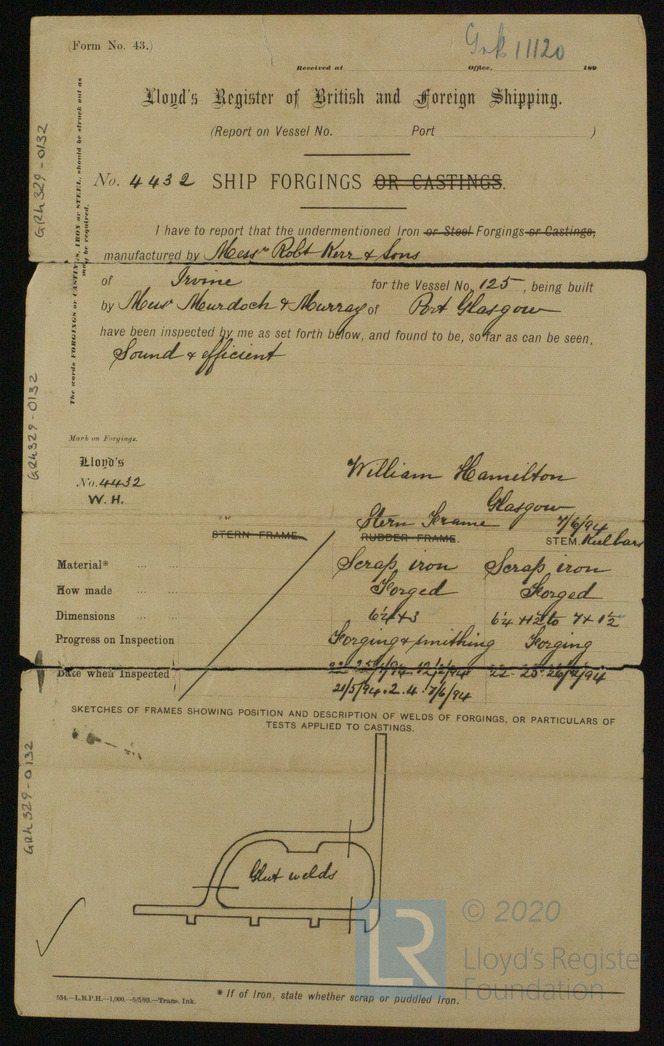 (Form No. 43.)
Grk 11120
Received at Office, 189
Lloyd's Register of British and Foreign Shipping.
(Report on Vessel No. Port )
No. 4432 SHIP FORGINGS OR CASTINGS.
I have to report that the undermentioned Iron or Steel Forgings or Castings,
manufactured by Messrs Robt Kerr & Sons
of Irvine for the Vessel No. 125, being built
by Messrs Murdoch & Murray of Port Glasgow
have been inspected by me as set forth below, and found to be, so far as can be seen,
Sound & efficient
The words FORGINGS or CASTINGS, IRON or STEEL, should be struck out as
may be required.
GRK329-0132
GRK329-0132
GRK329-0132
Mark on Forgings.
Lloyd's
No. 4432
W. H.
William Hamilton
Glasgow
7/6/94
Stern Frame
STERN FRAME. RUDDER FRAME. STEM. Keelbars
Material* Scrap iron Scrap iron
How made Forged Forged
Dimensions 6¼ x 3 to 7 x 1½
Progress on Inspection Forging & smithing Forging
Date when Inspected
21/5/94. 2. 4. 7/6/94
SKETCHES OF FRAMES SHOWING POSITION AND DESCRIPTION OF WELDS OF FORGINGS, OR PARTICULARS OF
TESTS APPLIED TO CASTINGS.
Glut welds
LR
© 2020
Lloyd's Register
Foundation
* If of Iron, state whether scrap or puddled Iron.
534.—L.R.P.H.—1,000.—5/5/93.—Trans. Ink.